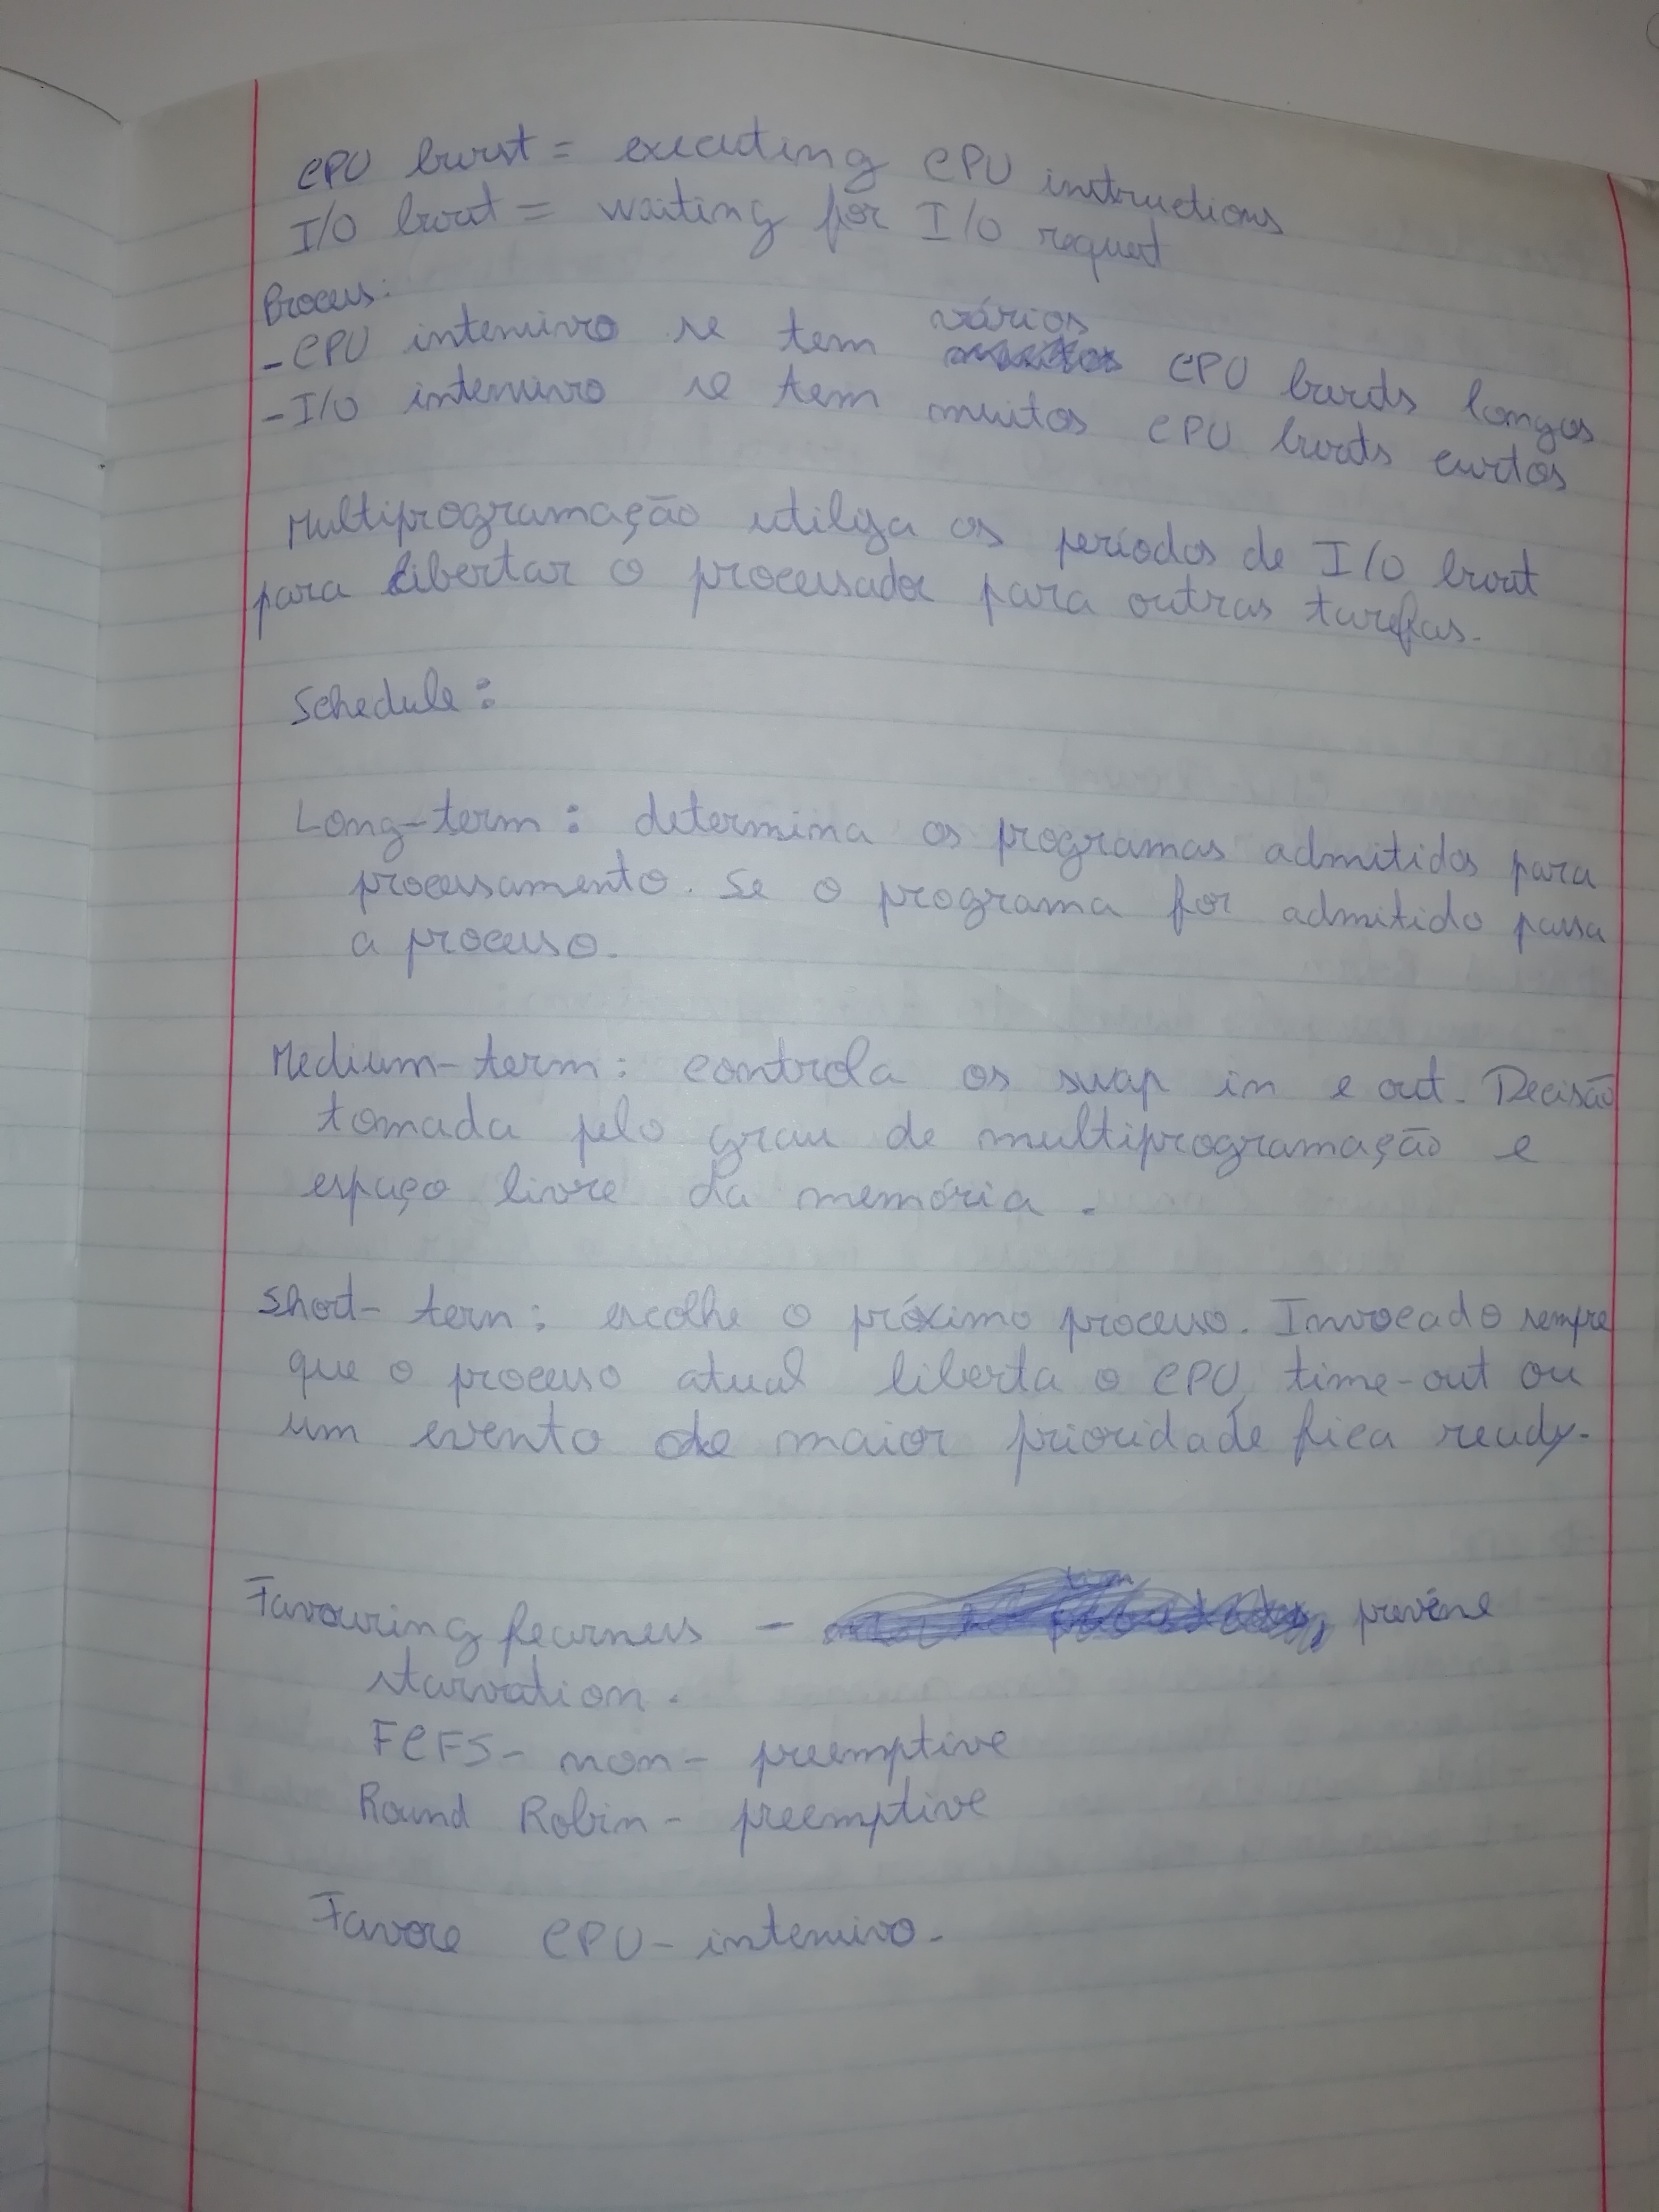 CPU burst = executing CPU instructions
I/O burst = waiting for I/O request
Process:
- CPU intensivo se tem vários CPU bursts longos
- I/O intensivo se tem muitos CPU bursts curtos
Multiprogramação utiliza os períodos de I/O burst
para libertar o processador para outras tarefas.
Schedule:
Long-term: determina os programas admitidos para
processamento. Se o programa for admitido passa
a processo.
Medium-term: controla os swap in e out. Decisão
tomada pelo grau de multiprogramação e
espaço livre da memória.
Short-term: escolhe o próximo processo. Invocado sempre
que o processo atual liberta o CPU, time-out ou
um evento de maior prioridade fica ready.
Favouring fearness - prevéne
starvation.
FCFS - non-preemptive
Round Robin - preemptive
Favore CPU-intensivo.